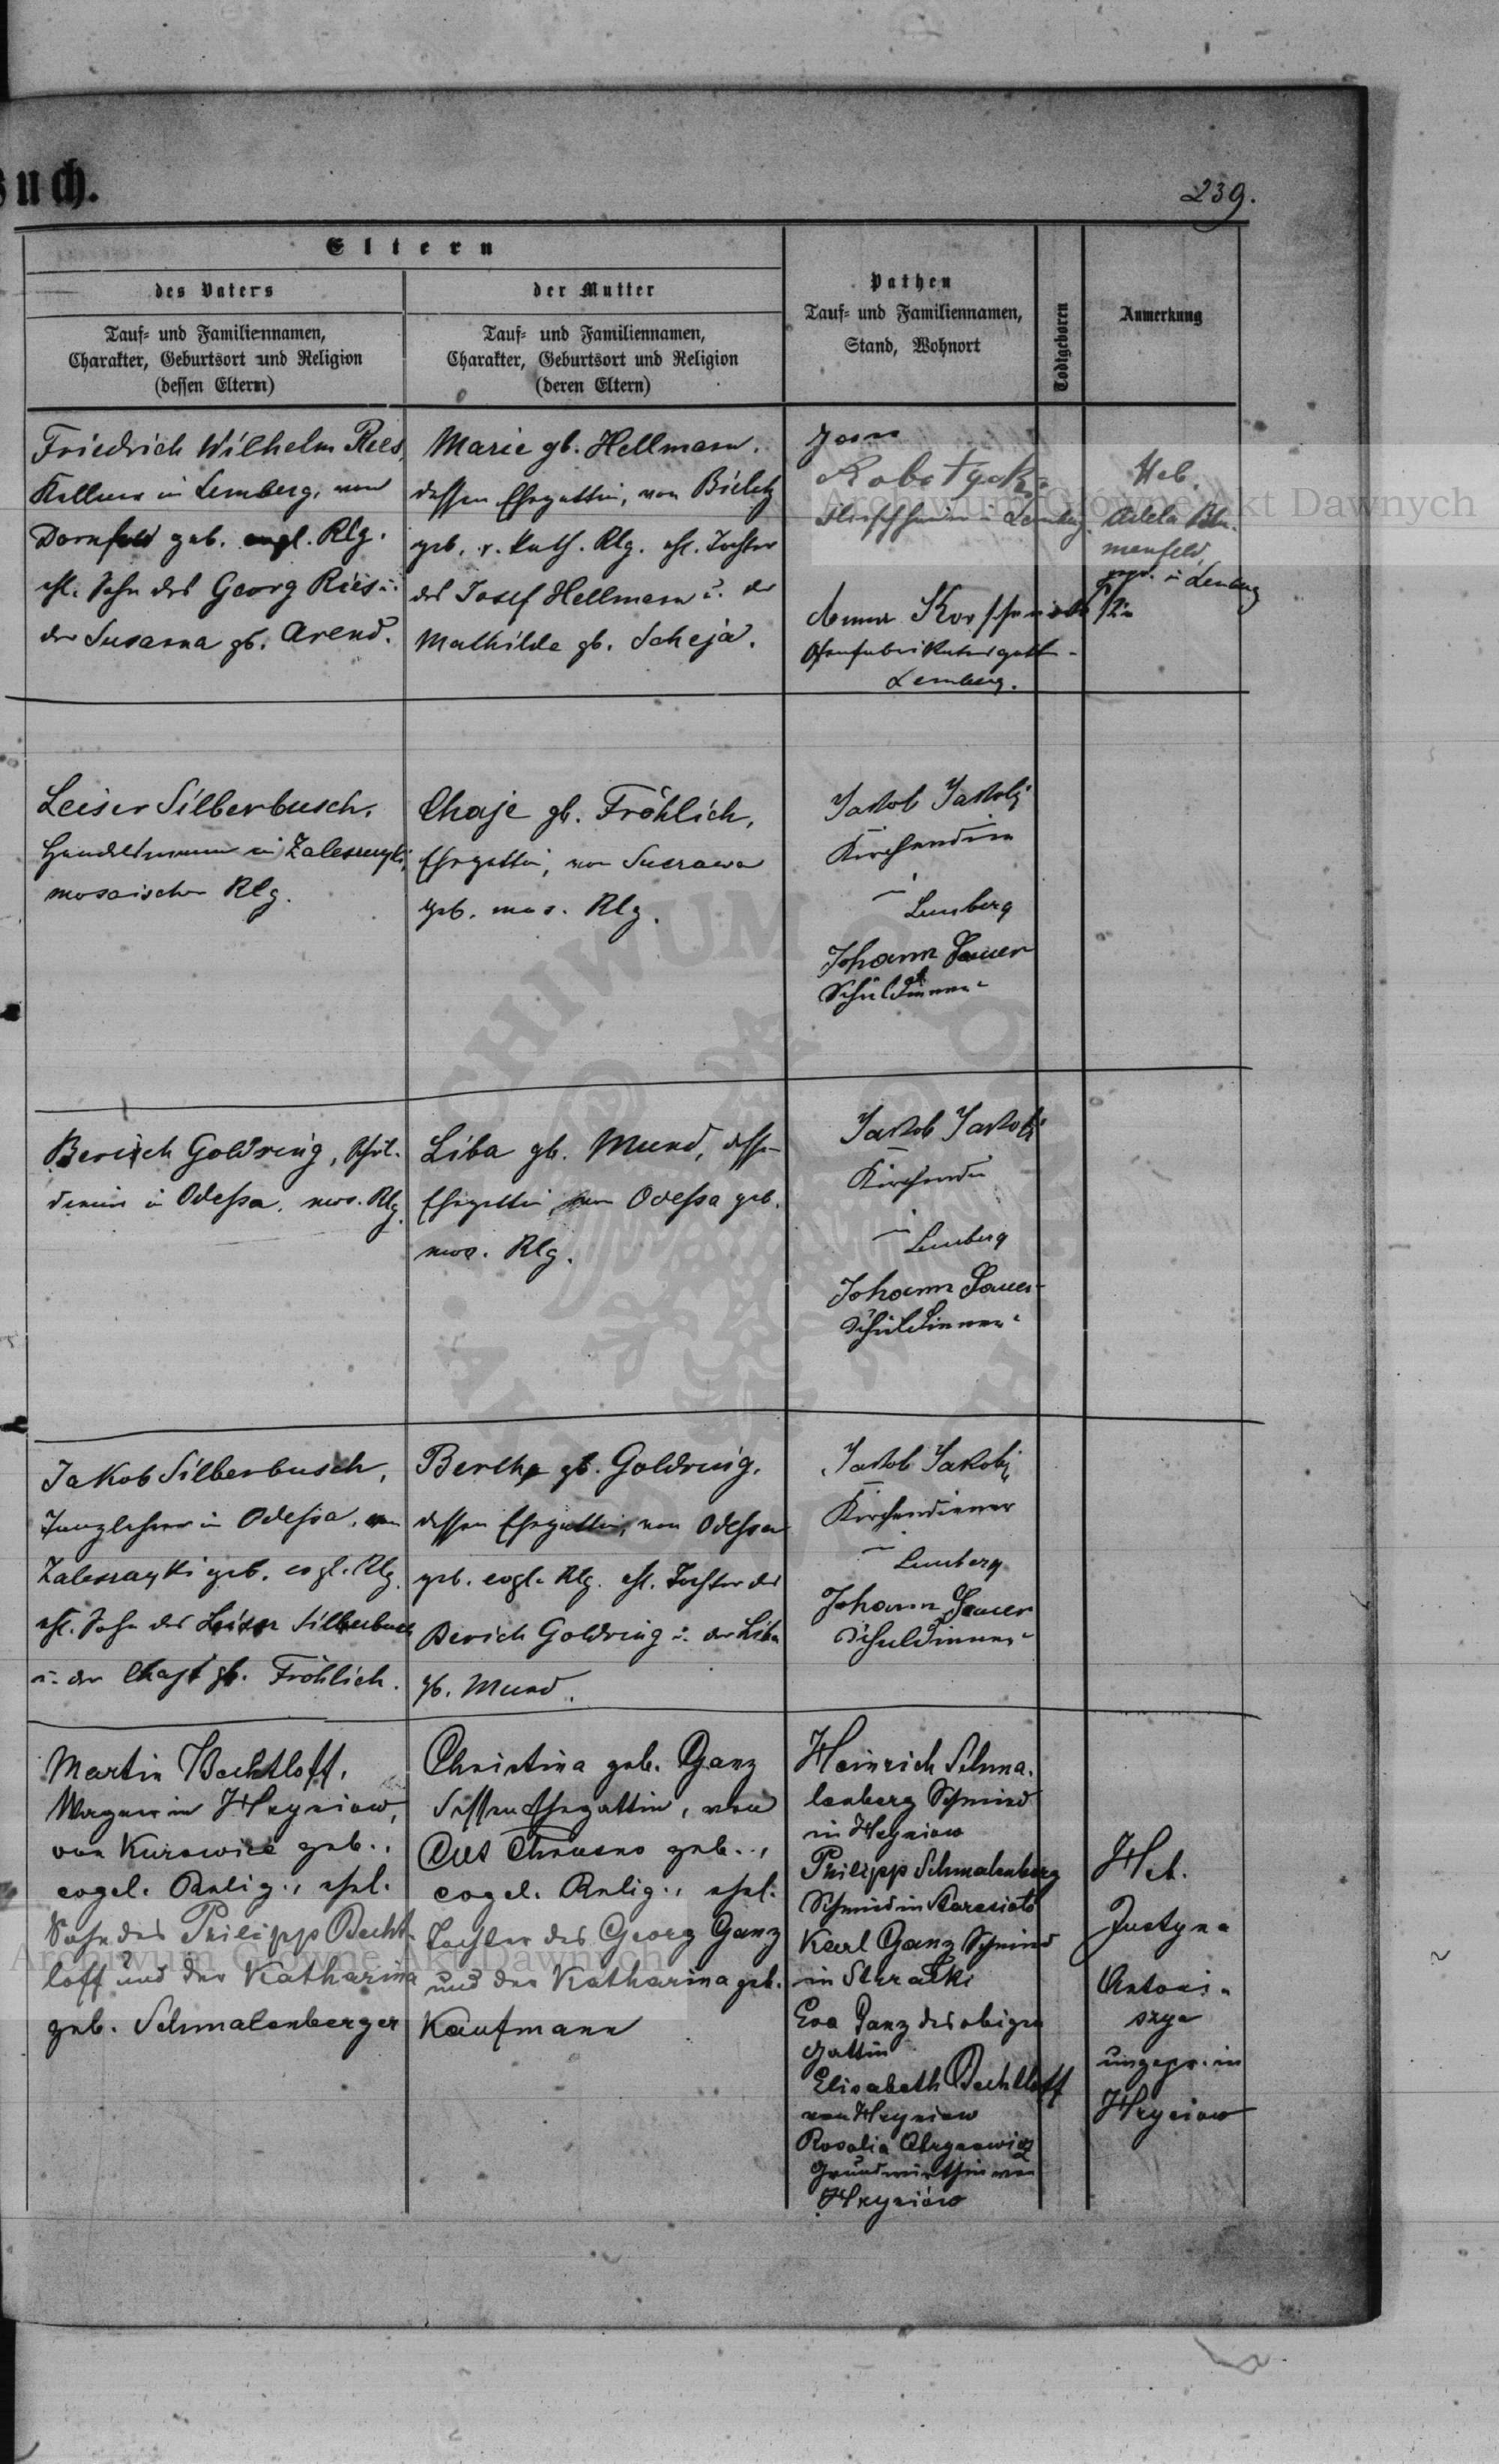 Buch.
239.
Eltern
des Vaters
Tauf- und Familiennamen,
Charakter, Geburtsort und Religion
(dessen Eltern)
der Mutter
Tauf- und Familiennamen,
Charakter, Geburtsort und Religion
(deren Eltern)
Pathen
Tauf- und Familiennamen,
Stand, Wohnort
Todtgeboren
Anmerkung
Friedrich Wilhelm Ries,
Kellner in Lemberg, von
Dornfeld geb. evgl. Rlg.
ehl. Sohn des Georg Ries u.
der Susanna gb. Arend.
Marie gb. Hellmann.
dessen Ehegattin, von Bielitz
geb. r. kath. Rlg. ehl. Tochter
des Josef Hellmann u. der
Mathilde gb. Scheja.
Robotycki
Lemberg
Anna
Lemberg.
Heb.
Adela Blu-
menfeld,
in Lemberg
Leiser Silberbusch,
Handelsmann in Zaleszczyki,
mosaischer Rlg.
Chaje gb. Fröhlich,
Ehegattin, von Suczawa
geb. mos. Rlg.
Jakob Jakobi
Kirchendien
in Lemberg
Johann Sauer
Schuldiener
Berisch Goldring,
in Odessa, mos. Rlg.
Liba gb. Mund, dessen
Ehegattin von Odessa geb.
mos. Rlg.
Jakob Jakobi
Kirchendie
in Lemberg
Johann Sauer
Schuldiener
Jakob Silberbusch,
in Odessa, von
Zaleszczyki geb. evgl. Rlg.
ehl. Sohn des Leiser Silberbusch
u. der Chaje gb. Fröhlich.
Bertha gb. Goldring,
dessen Ehegattin, von Odessa
geb. evgl. Rlg. ehl. Tochter des
Berich Goldring u. der Liba
gb. Mund.
Jakob Jakobi
Kirchendiener
in Lemberg
Johann Sauer
Schuldiener
Martin Bechtloff,
Wagner in Hryniow,
von Kurowice geb.,
evgel. Relig., ehel.
Sohn des Philipp Becht-
loff und der Katharina
geb. Schmalenberger
Christina geb. Ganz
dessen Ehegattin, von
Alt Chrusno geb.,
evgel. Relig., ehel.
Tochter des Georg Ganz
und der Katharina geb.
Kaufmann
Heinrich Schma-
lenberg Schmied
in Hryniow
Philipp Schmalenberg
Schmied in Staresioto
Karl Ganz Schmied
in Strałki
Eva Ganz des obigen
Gattin
Elisabeth Bechtloff
von Hryniow
Rosalia
Grundwirthin von
Hryniów
Heb.
Justyna
Antoni-
szyn
ungepr. in
Hryniow
Archiwum Główne Akt Dawnych
Archiwum Główne Akt Dawnych